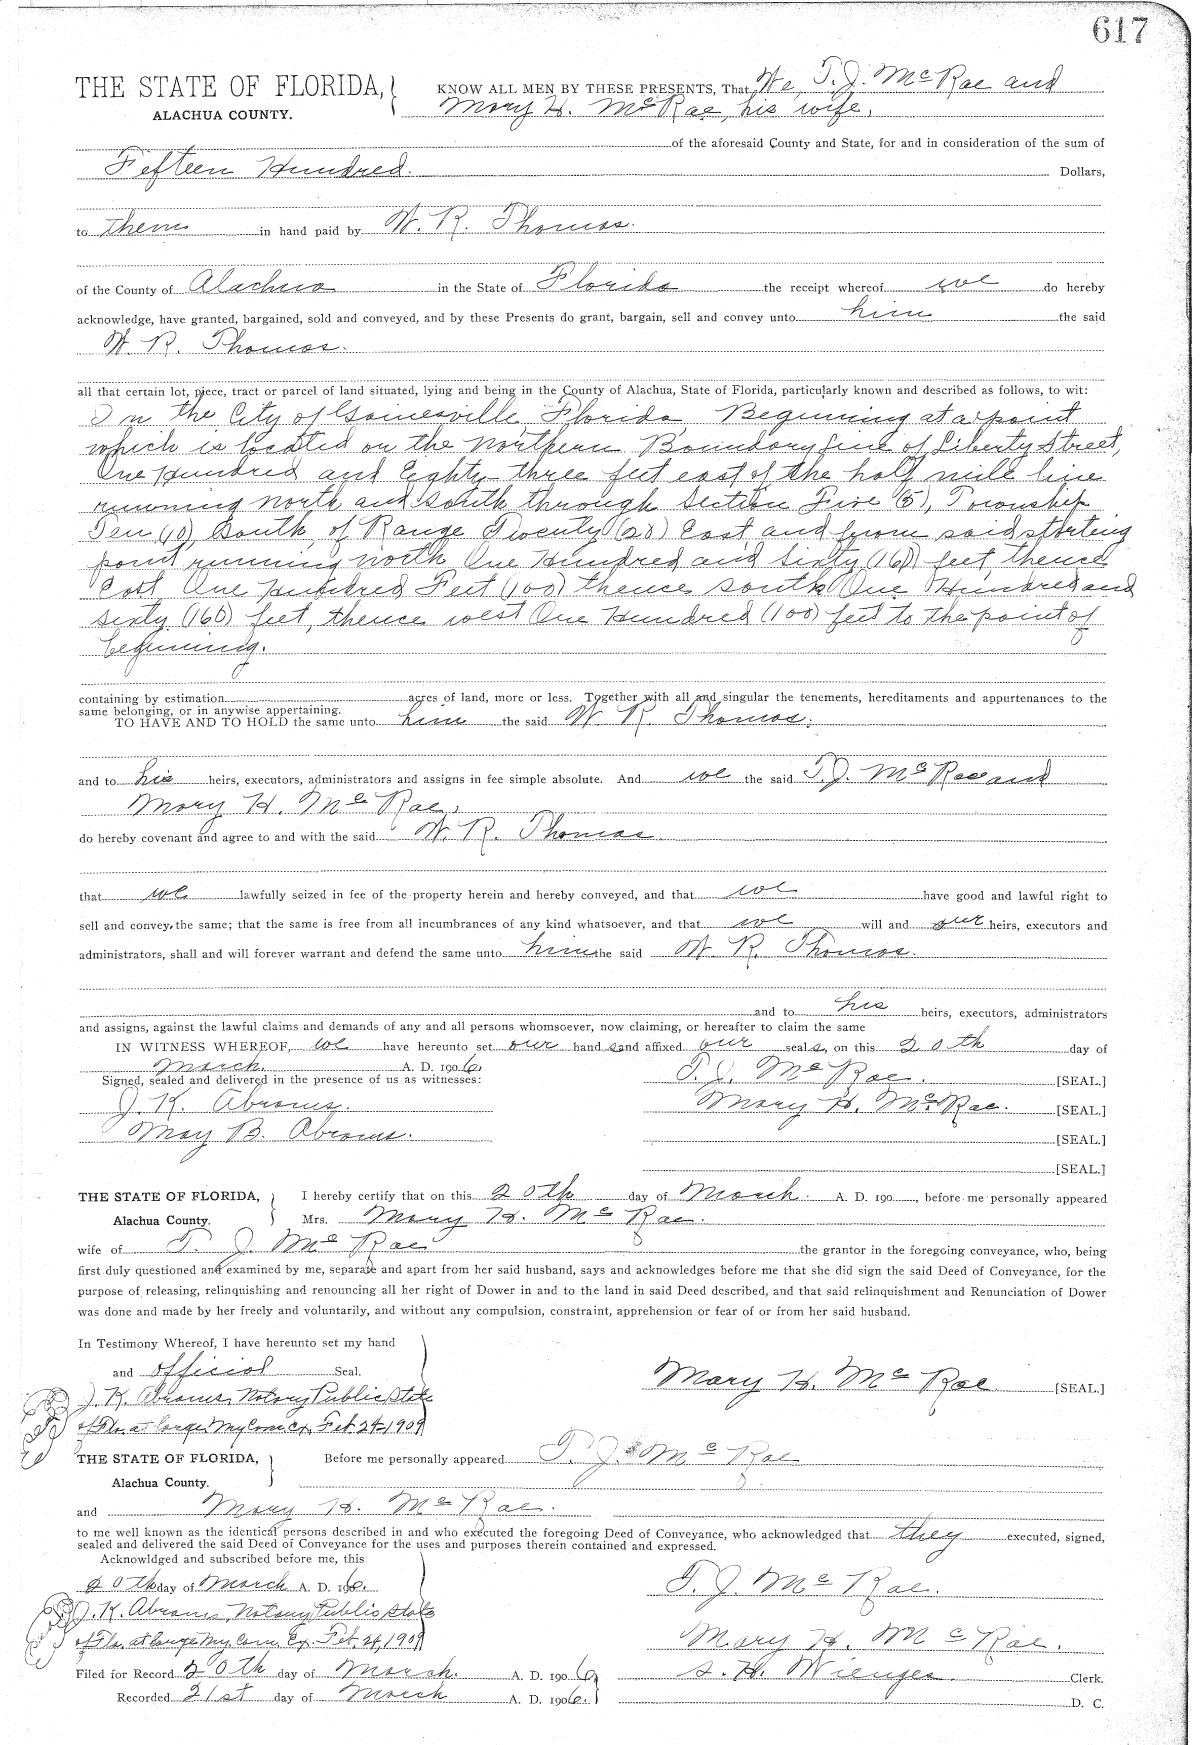 617
THE STATE OF FLORIDA, KNOW ALL MEN BY THESE PRESENTS, That We, T. J. McRae and
ALACHUA COUNTY. Mary H. McRae, his wife,
of the aforesaid County and State, for and in consideration of the sum of
Fifteen Hundred. Dollars,
to them in hand paid by W. R. Thomas.
of the County of Alachua in the State of Florida the receipt whereof we do hereby
acknowledge, have granted, bargained, sold and conveyed, and by these Presents do grant, bargain, sell and convey unto him the said
W. R. Thomas.
all that certain lot, piece, tract or parcel of land situated, lying and being in the County of Alachua, State of Florida, particularly known and described as follows, to wit:
In the City of Gainesville, Florida, Beginning at a point
which is located on the northern Boundary line of Liberty Street,
One Hundred and Eighty-three feet east of the half mile line
running north and south through Section Five (5), Township
Ten (10), South, of Range Twenty (20) East, and from said starting
point running north One Hundred and Sixty (160) feet, thence
East One Hundred Feet (100) thence south One Hundred and
sixty (160) feet, thence west One Hundred (100) feet to the point of
beginning.
containing by estimation acres of land, more or less. Together with all and singular the tenements, hereditaments and appurtenances to the
same belonging, or in anywise appertaining.
TO HAVE AND TO HOLD the same unto him the said W. R. Thomas.
and to his heirs, executors, administrators and assigns in fee simple absolute. And we the said T. J. McRae and
Mary H. McRae,
do hereby covenant and agree to and with the said W. R. Thomas
that we lawfully seized in fee of the property herein and hereby conveyed, and that we have good and lawful right to
sell and convey the same; that the same is free from all incumbrances of any kind whatsoever, and that we will and our heirs, executors and
administrators, shall and will forever warrant and defend the same unto him the said W. R. Thomas.
and to his heirs, executors, administrators
and assigns, against the lawful claims and demands of any and all persons whomsoever, now claiming, or hereafter to claim the same
IN WITNESS WHEREOF, we have hereunto set our hands and affixed our seals, on this 20th day of
March. A. D. 1906.
Signed, sealed and delivered in the presence of us as witnesses: T. J. McRae. [SEAL.]
J. K. Abrams. Mary H. McRae. [SEAL.]
May B. Abrams. [SEAL.]
[SEAL.]
THE STATE OF FLORIDA, I hereby certify that on this 20th day of March. A. D. 190 , before me personally appeared
Alachua County. Mrs. Mary H. McRae.
wife of T. J. McRae the grantor in the foregoing conveyance, who, being
first duly questioned and examined by me, separate and apart from her said husband, says and acknowledges before me that she did sign the said Deed of Conveyance, for the
purpose of releasing, relinquishing and renouncing all her right of Dower in and to the land in said Deed described, and that said relinquishment and Renunciation of Dower
was done and made by her freely and voluntarily, and without any compulsion, constraint, apprehension or fear of or from her said husband.
In Testimony Whereof, I have hereunto set my hand
and official Seal. Mary H. McRae [SEAL.]
J. K. Abrams, Notary Public State
of Fla. at large. My Com. Ex. Feb. 24-1909
THE STATE OF FLORIDA, Before me personally appeared T. J. McRae
Alachua County.
and Mary H. McRae.
to me well known as the identical persons described in and who executed the foregoing Deed of Conveyance, who acknowledged that they executed, signed,
sealed and delivered the said Deed of Conveyance for the uses and purposes therein contained and expressed.
Acknowldged and subscribed before me, this
20th day of March A. D. 196. T. J. McRae.
J. K. Abrams, Notary Public State
of Fla. at large My Com. Ex. Feb. 24, 1909 Mary H. McRae.
Filed for Record 20th day of March. A. D. 1906 S. H. Wienges. Clerk.
Recorded 21st day of March A. D. 1906. D. C.